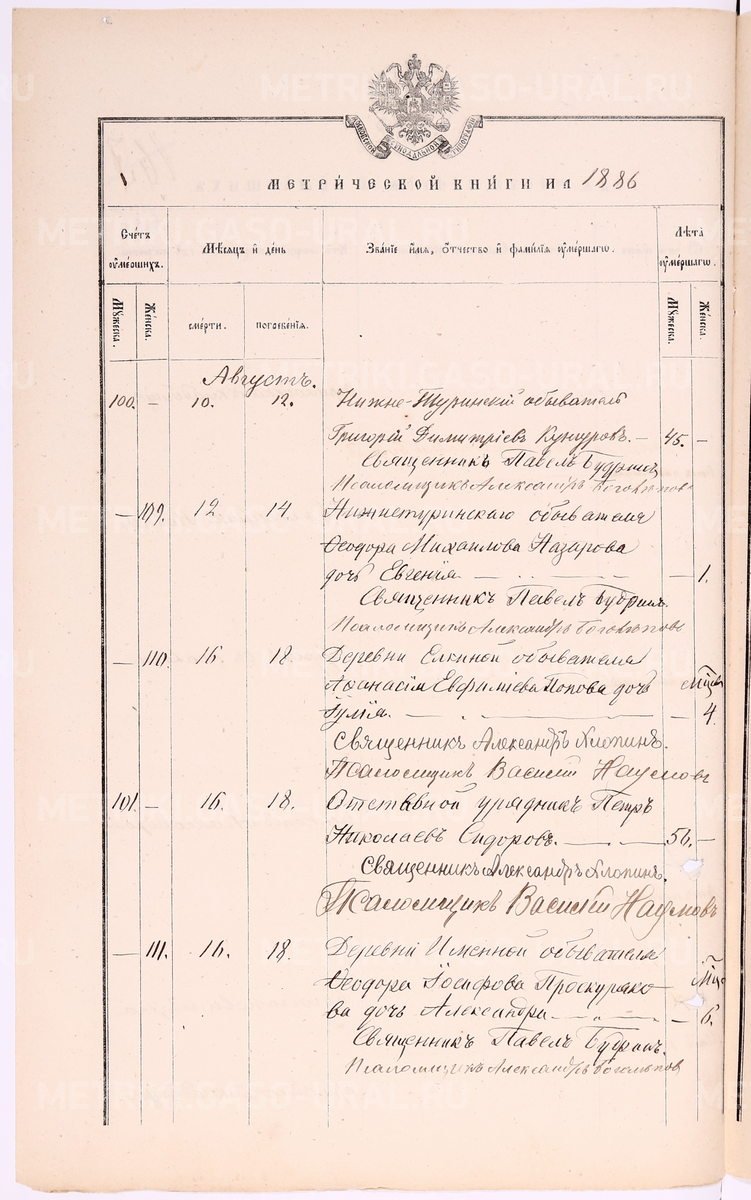 МЕТРИЧЕСКОЙ КНИГИ НА 1886
Счетъ умершихъ.
Мѣсяцъ и день
Званіе имя, отчество и фамилія умершагѡ.
Лѣта умершагѡ.
Мужеска.
Женска.
смерти.
погребенія.
Мужеска.
Женска.
Августъ.
100. — 10. 12. Нижне-Туринскій обыватель
Григорій Димитріевъ Кунгуровъ. — 45. —
Священникъ Павелъ Будринъ
Псаломщикъ Александръ Боголѣповъ
— 109. 12 14 Нижнетуринскаго обывателя
Ѳеодора Михаилова Назарова
дочь Евгенія — — 1.
Священникъ Павелъ Будринъ.
Псаломщикъ Александръ Боголѣповъ
— 110. 16 18. Деревни Елкиной обывателя
Аѳанасія Евфиміева Попова дочь Мцев
Іулія. — — 4.
Священникъ Александръ Хлопинъ.
Псаломщикъ Василій Наумовъ
101. — 16. 18. Отставной урядникъ Петръ
Николаевъ Сидоровъ. — 56. —
Священникъ Александръ Хлопинъ.
Псаломщикъ Василій Наумовъ
— 111. 16. 18. Деревни Именной обывателя
Ѳеодора Іосифова Проскуряко- Мце
ва дочь Александра — „ — 6.
Священникъ Павелъ Будринъ.
Псаломщикъ Александръ Боголѣповъ
METRIKI.GASO-URAL.RU